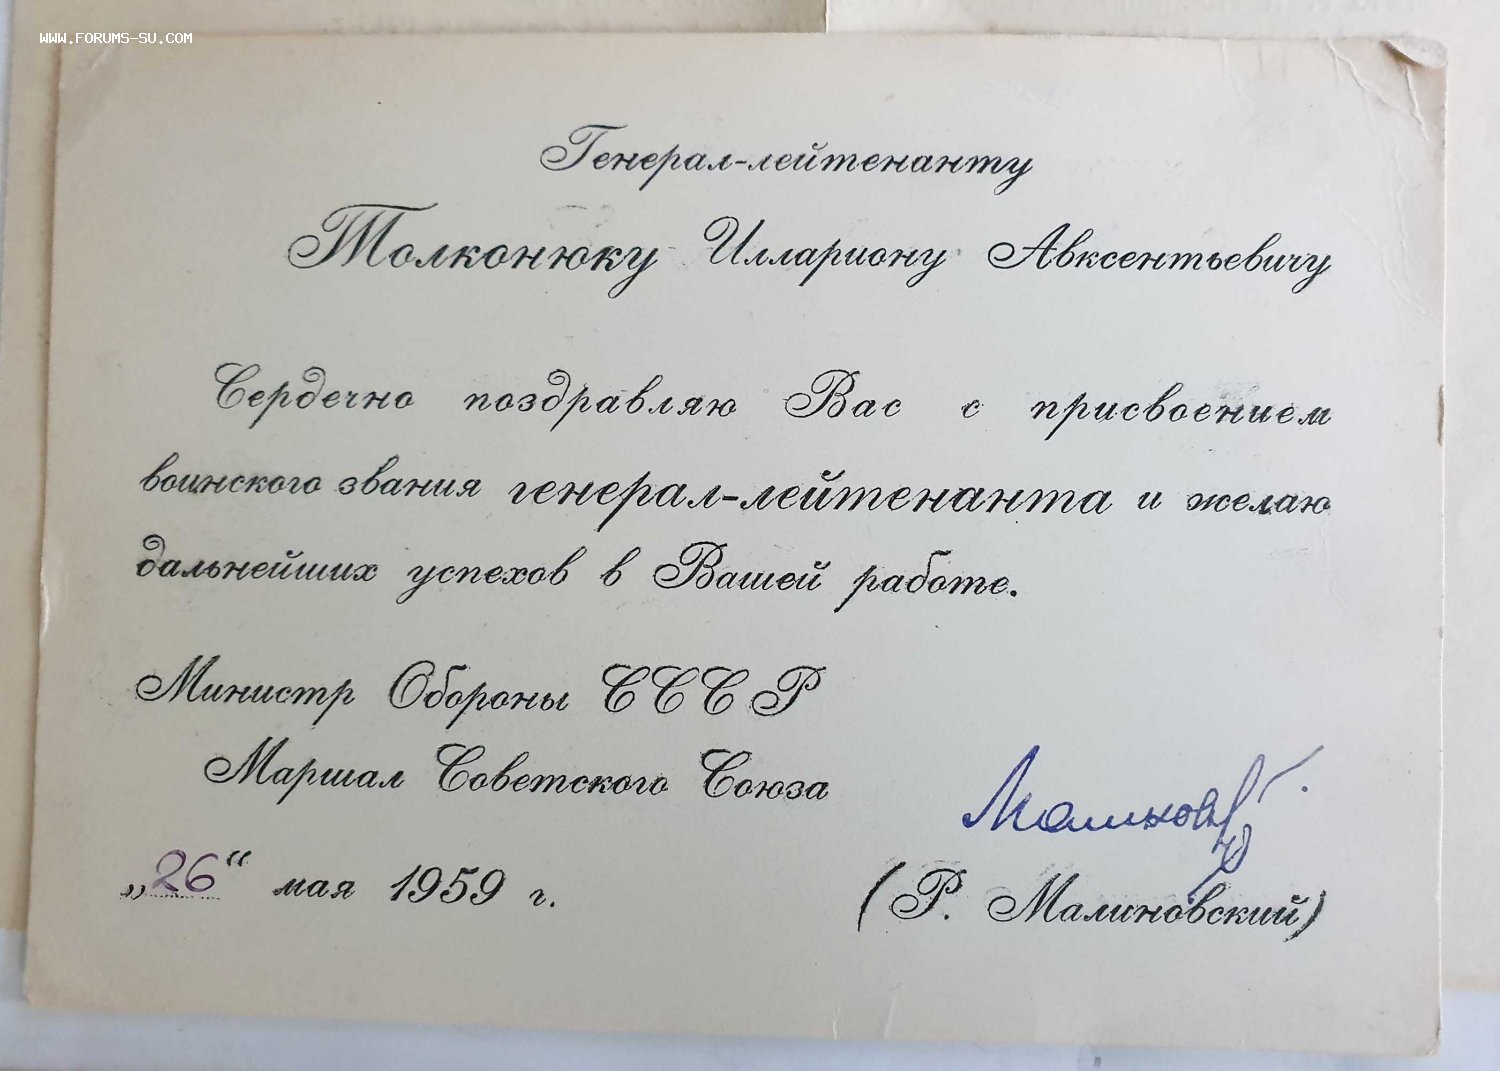 WWW.FORUMS-SU.COM
Генерал-лейтенанту
Толконюку Иллариону Авксентьевичу
Сердечно поздравляю Вас с присвоением
воинского звания генерал-лейтенанта и желаю
дальнейших успехов в Вашей работе.
Министр Обороны СССР
Маршал Советского Союза
„26“ мая 1959 г.
(Р. Малиновский)